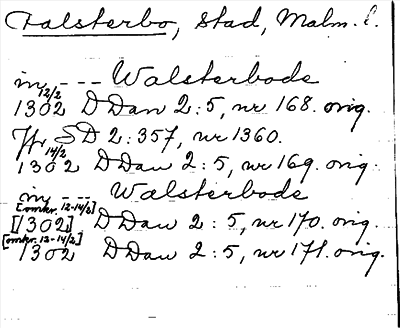 Falsterbo, Stad, Malm. l.
in --- Walsterbode
12/2
1302 DDan 2:5, nr 168. orig.
Jfr SD 2:357, nr 1360.
14/2
1302 DDan 2:5, nr 169. orig.
in --- Walsterbode
[omkr. 12-14/2]
[1302] DDan 2:5, nr 170. orig.
[omkr. 12-14/2]
1302 DDan 2:5, nr 171. orig.